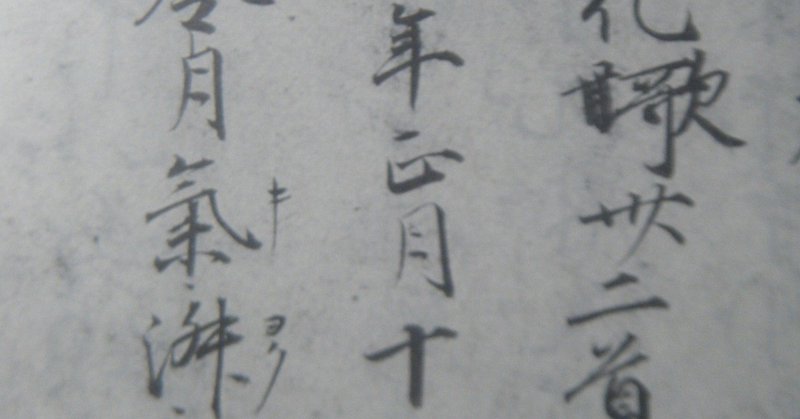 花歌卅二首
年正月十
令月氣淑
キ ヨク